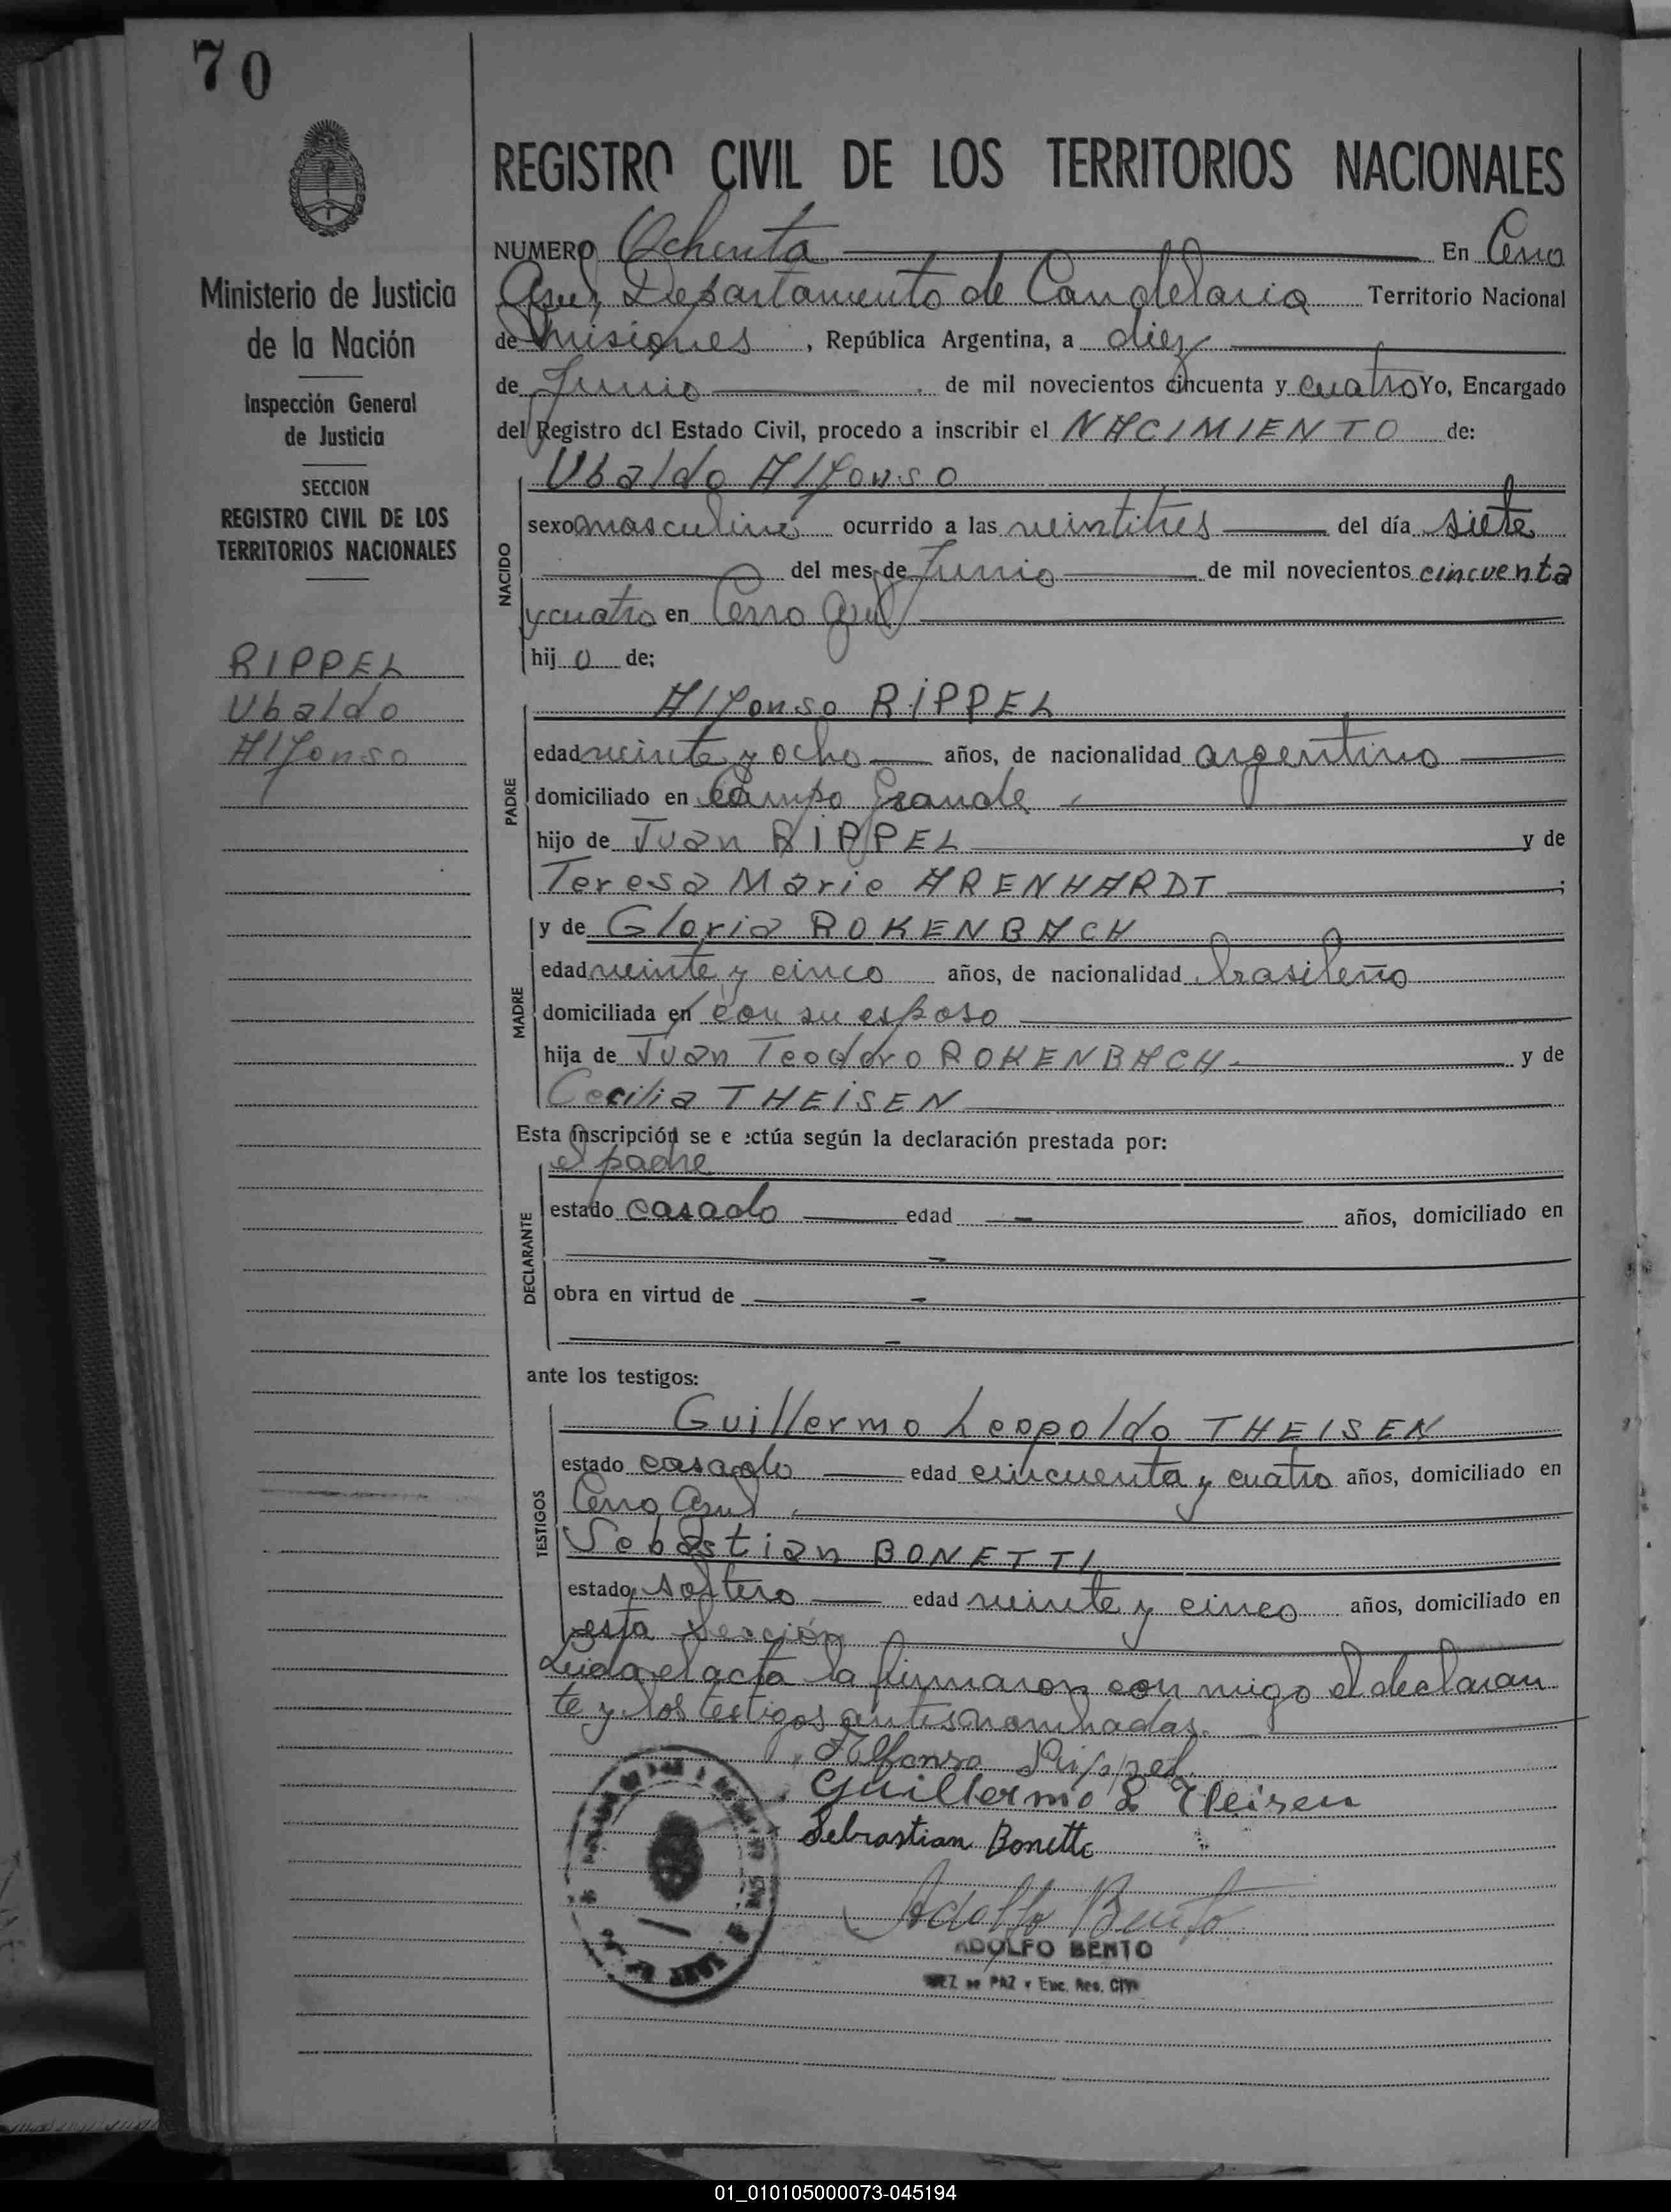 70
REGISTRO CIVIL DE LOS TERRITORIOS NACIONALES
Ministerio de Justicia
de la Nación
Inspección General
de Justicia
SECCION
REGISTRO CIVIL DE LOS
TERRITORIOS NACIONALES
RIPPEL
Ubaldo
Alfonso
NUMERO Ochenta En Cerro
Azul, Departamento de Candelaria Territorio Nacional
de Misiones, República Argentina, a diez
de Junio de mil novecientos cincuenta y cuatro Yo, Encargado
del Registro del Estado Civil, procedo a inscribir el NACIMIENTO de:
NACIDO
Ubaldo Alfonso
sexo masculino ocurrido a las veintitres del día siete
del mes de Junio de mil novecientos cincuenta
y cuatro en Cerro Azul
hij o de;
PADRE
Alfonso RIPPEL
edad veinte y ocho años, de nacionalidad argentino
domiciliado en Campo Grande
hijo de Juan RIPPEL y de
Teresa Marie ARENHARDT;
MADRE
y de Gloria ROKENBACH
edad veinte y cinco años, de nacionalidad brasileña
domiciliada en con su esposo
hija de Juan Teodoro ROKENBACH y de
Cecilia THEISEN
Esta inscripción se e ectúa según la declaración prestada por:
DECLARANTE
el padre
estado casado edad - años, domiciliado en
-
obra en virtud de -
-
ante los testigos:
TESTIGOS
Guillermo Leopoldo THEISEN
estado casado edad cincuenta y cuatro años, domiciliado en
Cerro Azul
Sebastian BONETTI
estado soltero edad veinte y cinco años, domiciliado en
esta sección
Leida el acta la firmaron con migo el declaran
te y los testigos antes nombrados.
Alfonso Rippel
Guillermo L Theisen
Sebastian Bonetti
Adolfo Bento
ADOLFO BENTO
JUEZ DE PAZ y Enc. Reg. CIVIL
01_010105000073-045194